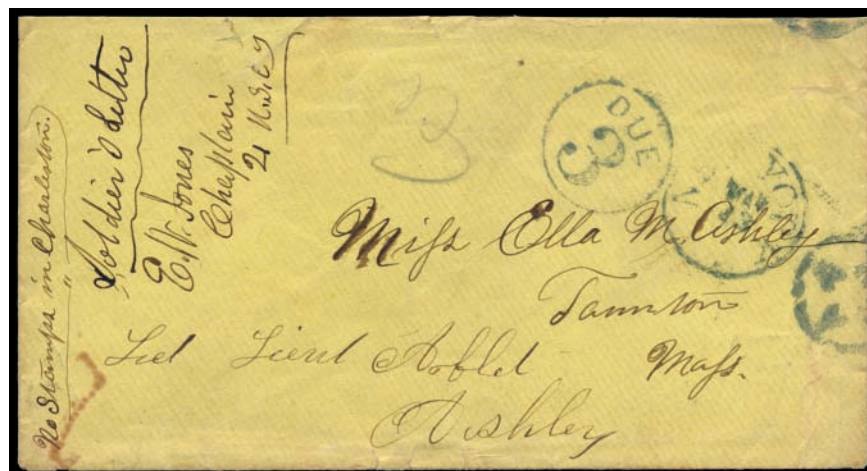 No Stamps in Charleston.
Soldier's Letter
E. W. Jones
Chaplain
21 U.S.C.T
3
DUE
3
Miss Ella M Ashley
Taunton
Mass.
Lieut
Ashley